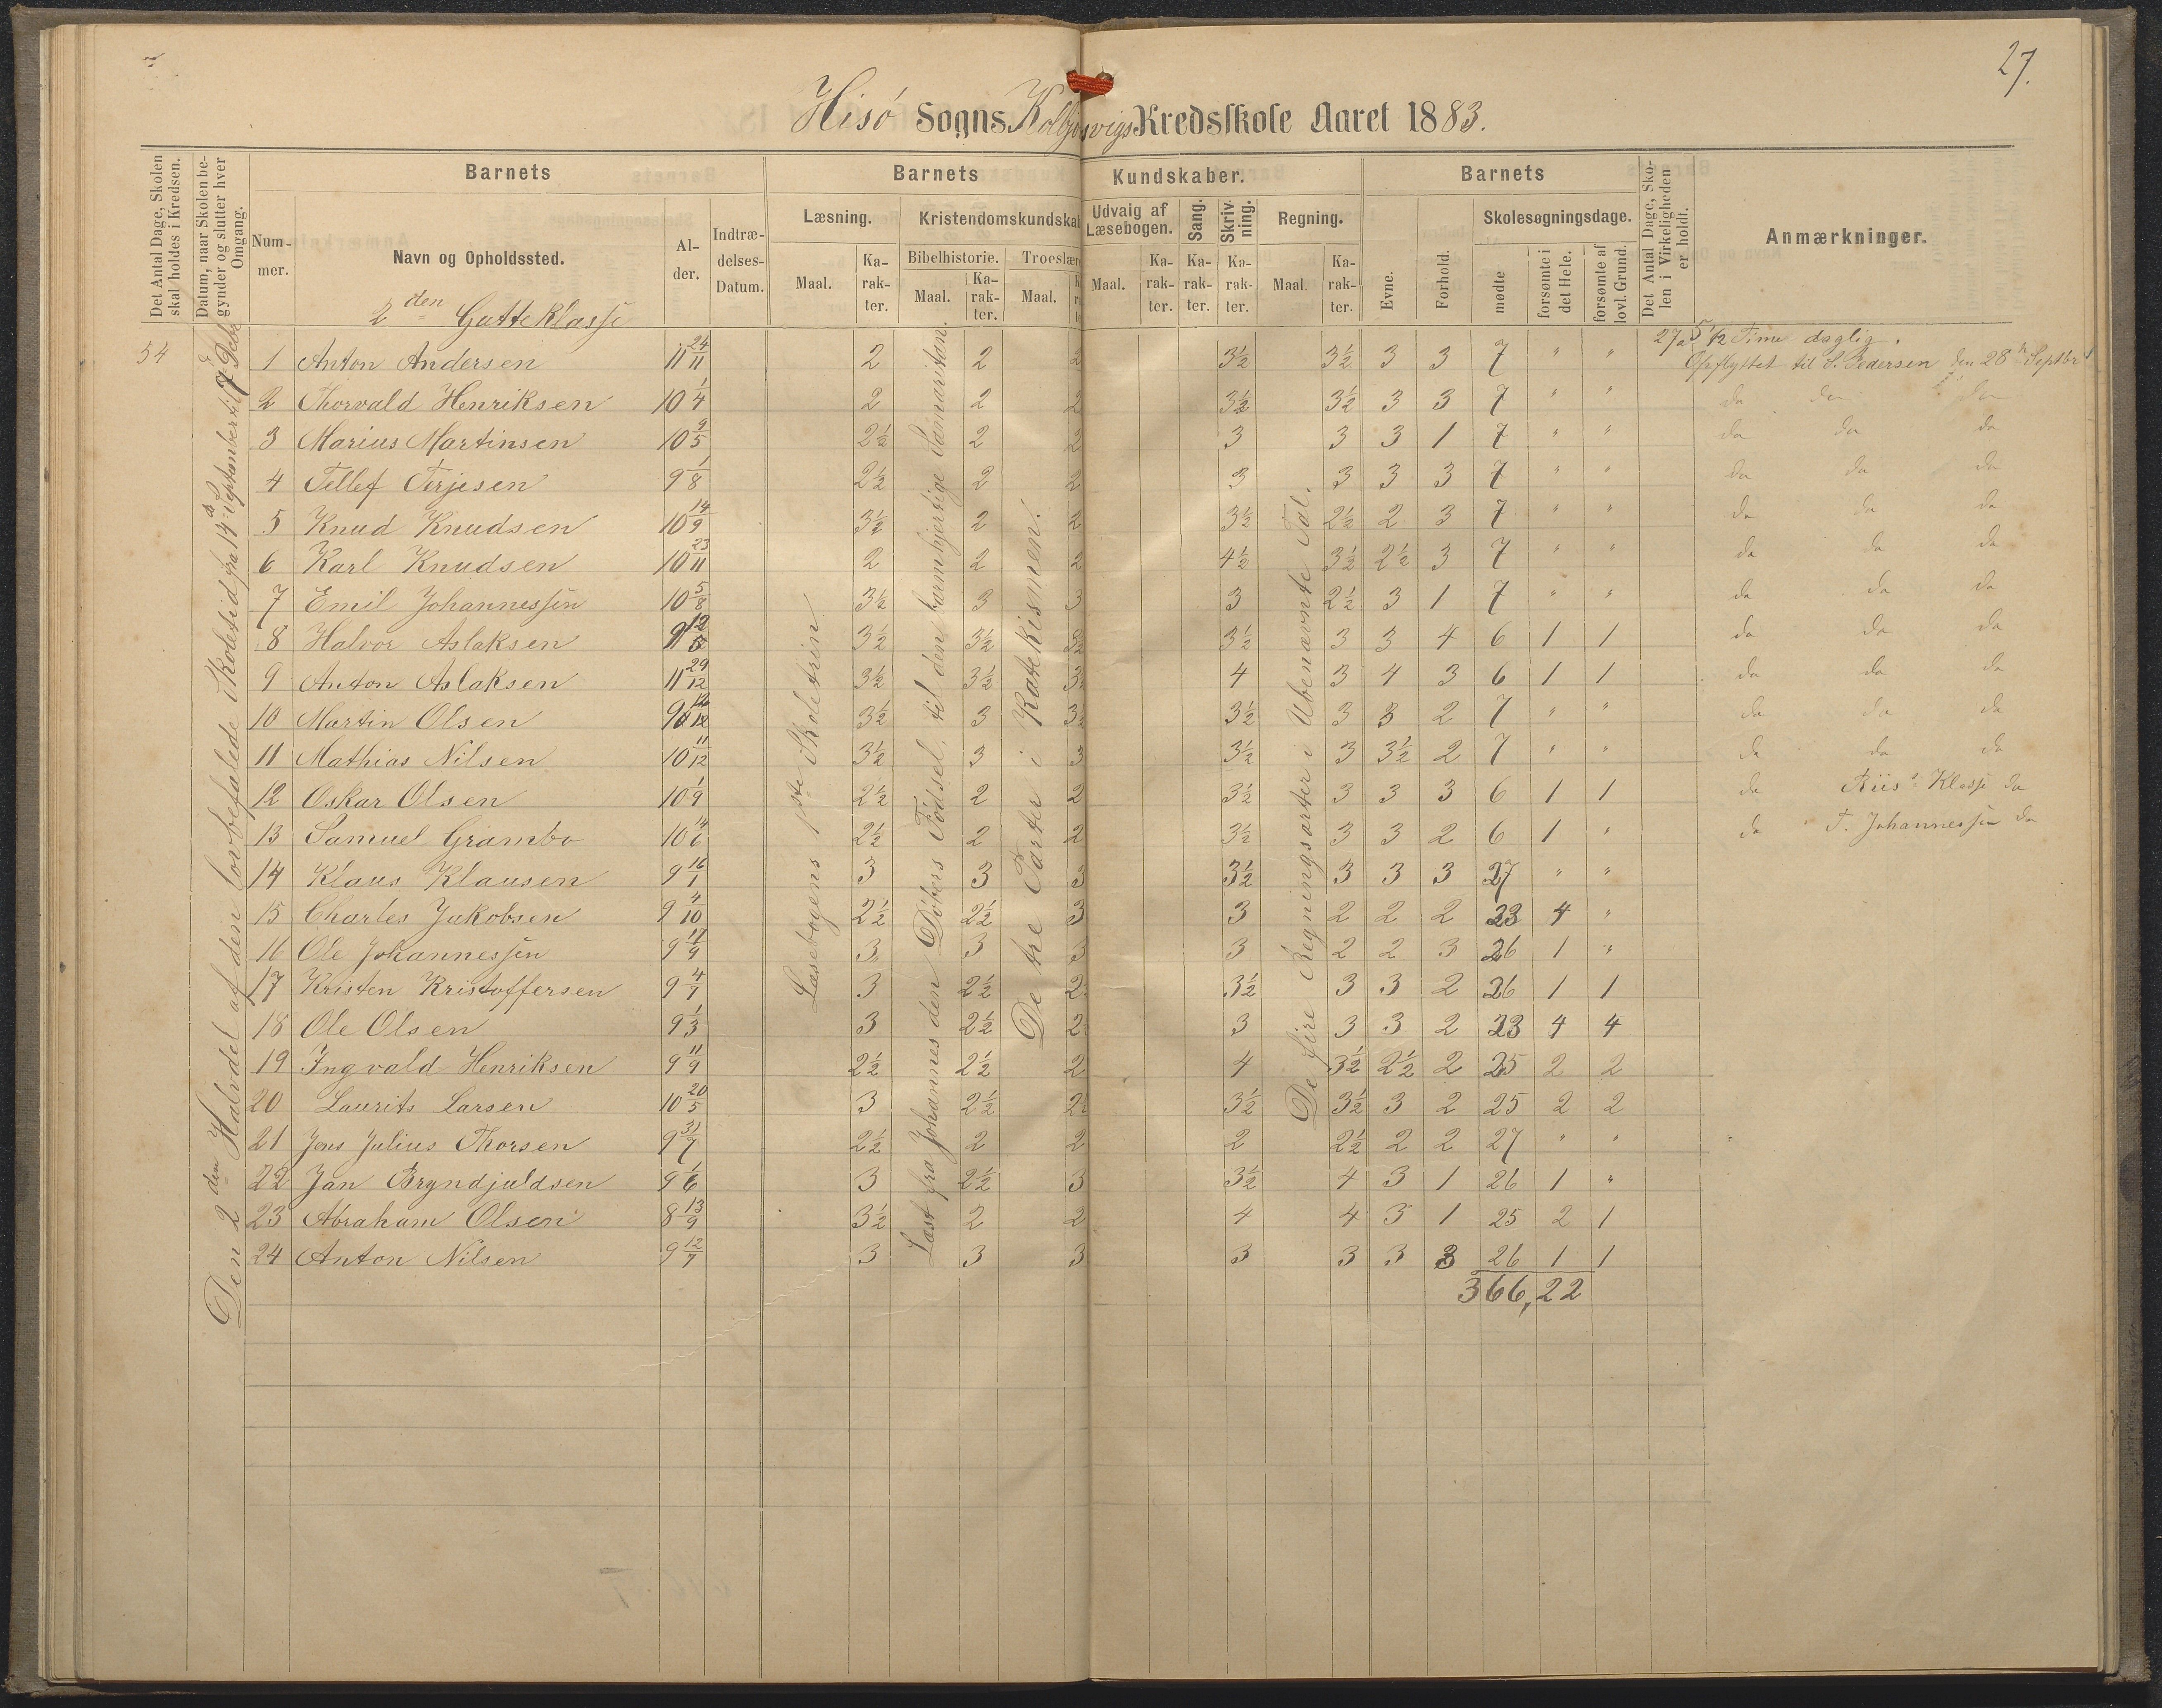 27.
Hisø Sogns Kolbjørnsvigs Kredsskole Aaret 1883.
Det Antal Dage, Skolen skal holdes i Kredsen.
Datum, naar Skolen begynder og slutter hver Omgang.
Barnets
Barnets
Kundskaber.
Barnets
Det Antal Dage, Skolen i Virkeligheden er holdt.
Anmærkninger.
Nummer.
Navn og Opholdssted.
Alder.
Indtrædelses-Datum.
Læsning.
Kristendomskundskab
Udvalg af Læsebogen.
Sang.
Skrivning.
Regning.
Evne.
Forhold.
Skolesøgningsdage.
Bibelhistorie.
Troeslære
Maal.
Karakter.
Maal.
Karakter.
Maal.
Maal.
Karakter.
Karakter.
Karakter.
Maal.
Karakter.
mødte
forsømte i det Hele.
forsømte af lovl. Grund.
2den Gutteklasse
54
Den 2den Halvdel af den lovbefalede Skoletid fra 14de September til 7de Decb
Læsebogens 1ste Skoletrin
Læst fra Johannes den Døbers Fødsel til den barmhjertige Samaritan.
De tre Parter i Katekismen.
De fire Regningsarter i Ubenævnte Tal.
27 a 5 1/2 Time daglig.
1 Anton Andersen 11 24/11 2 2 2 3½ 3½ 3 3 7 " " Opflyttet til S. Pedersen den 28de Septbr
2 Thorvald Henriksen 10 1/4 2 2 2 3½ 3½ 3 3 7 " " do do do
3 Marius Martinsen 10 9/5 2½ 2 2 3 3 3 1 7 " " do do do
4 Tellef Terjesen 9 1/8 2½ 2 2 3 3 3 3 7 " " do do do
5 Knud Knudsen 10 14/9 3½ 2 2 3½ 2½ 2 3 7 " " do do do
6 Karl Knudsen 10 23/11 2 2 2 4½ 3½ 2½ 3 7 " " do do do
7 Emil Johannessen 10 5/8 3½ 3 3 3 2½ 3 1 7 " " do do do
8 Halvor Aslaksen 3½ 3½ 3½ 3½ 3 3 4 6 1 1 do do do
9 Anton Aslaksen 11 29/12 3½ 3½ 3½ 4 3 4 3 6 1 1 do do do
10 Martin Olsen 3½ 3 3½ 3½ 3 3 2 7 " " do do do
11 Mathias Nilsen 10 11/12 3½ 3 3 3½ 3 3½ 2 7 " " do do do
12 Oskar Olsen 10 1/9 2½ 2 2 3½ 3 3 3 6 1 1 do Riis's Klasse do
13 Samuel Grambo 10 14/6 2½ 2 2 3½ 3 3 2 6 1 " do T. Johannessen do
14 Klaus Klausen 9 16/1 3 3 3 3½ 3 3 3 27 " "
15 Charles Jakobsen 9 4/10 2½ 2½ 3 3 2 2 2 23 4 "
16 Ole Johannessen 9 17/9 3 3 3 3 2 2 3 26 1 "
17 Kristen Kristoffersen 9 4/7 3 2½ 2 3½ 3 3 2 26 1 1
18 Ole Olsen 9 1/3 3 2½ 2 3 3 3 2 23 4 4
19 Ingvald Henriksen 9 11/9 2½ 2½ 2 4 3½ 2½ 2 25 2 2
20 Laurits Larsen 10 20/5 3 2½ 2½ 3½ 3½ 3 2 25 2 2
21 Jens Julius Thorsen 9 31/7 2½ 2 2 2 2½ 2 2 27 " "
22 Jan Bryndjuldsen 9 1/6 3 2½ 3 3½ 4 3 1 26 1 "
23 Abraham Olsen 8 13/9 3½ 2 2 4 4 3 1 25 2 1
24 Anton Nilsen 9 12/7 3 3 3 3 3 3 3 26 1 1
366, 22